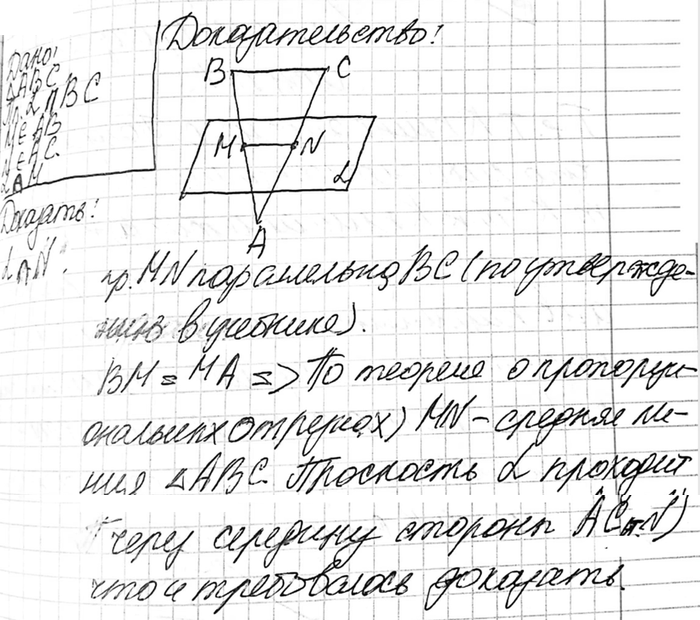 Доказательство!
Дано:
△ABC
M∈AB
N∈AC
Доказать!
B C
M N
α
A
пр. MN паралельна BC (по утвержде-
нию в учебнике).
BM = MA => По теореме о пропорци-
ональных отрезках) MN - средняя ли-
ния △ABC. Плоскость α проходит
через середину стороны AC т. N)
что и требовалось доказать.